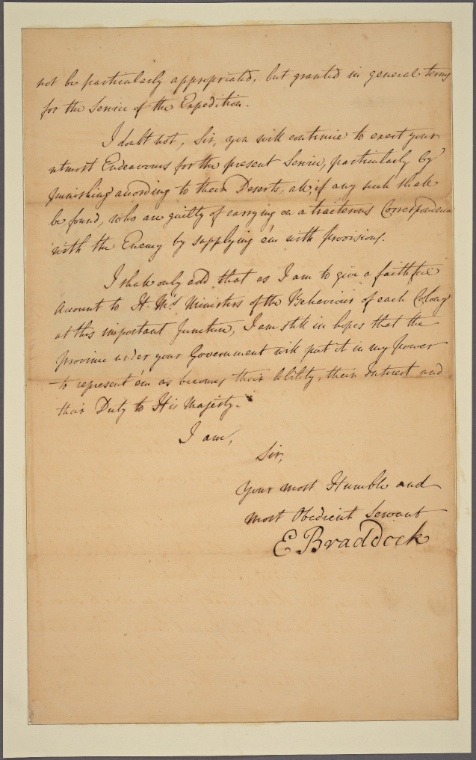 not be particularly appropriated, but granted in general terms
for the Service of the Expedition.
I doubt not, Sir, you will continue to exert your
utmost Endeavours for the present Service, particularly by
punishing according to their Deserts, all, if any such shall
be found, who are guilty of carrying on a traiterous Correspondence
with the Enemy by supplying 'em with provisions.
I shall only add, that as I am to give a faithful
Account to H. M's Ministers of the Behaviour of each Colony
at this important Juncture, I am still in hopes that the
Province under your Government will put it in my power
to represent em as becomes their Ability, their Interest and
their Duty to His Majesty.
I am,
Sir,
Your most Humble and
most Obedient Servant
E Braddock